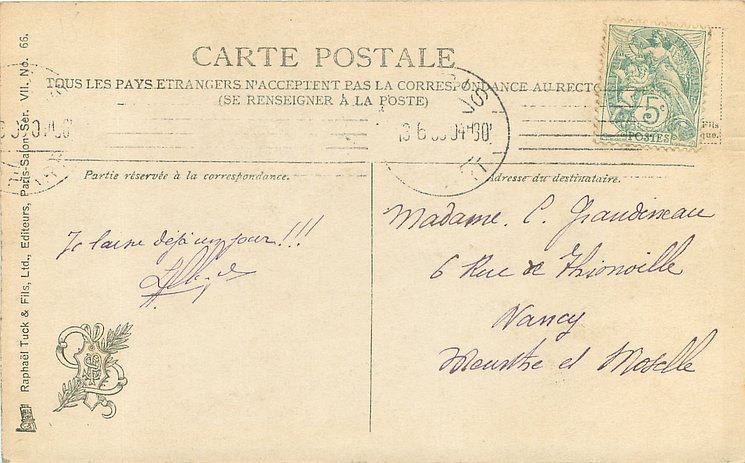 CARTE POSTALE
TOUS LES PAYS ETRANGERS N'ACCEPTENT PAS LA CORRESPONDANCE AU RECTO
(SE RENSEIGNER À LA POSTE)
5c
POSTES
Partie réservée à la correspondance.
déjà un jour !!!
Adresse du destinataire.
Madame. C.
6 Rue de Thionville
Nancy
Meurthe et Moselle
Raphaël Tuck & Fils, Ltd., Editeurs, Paris-Salon Ser. VII. No. 66.